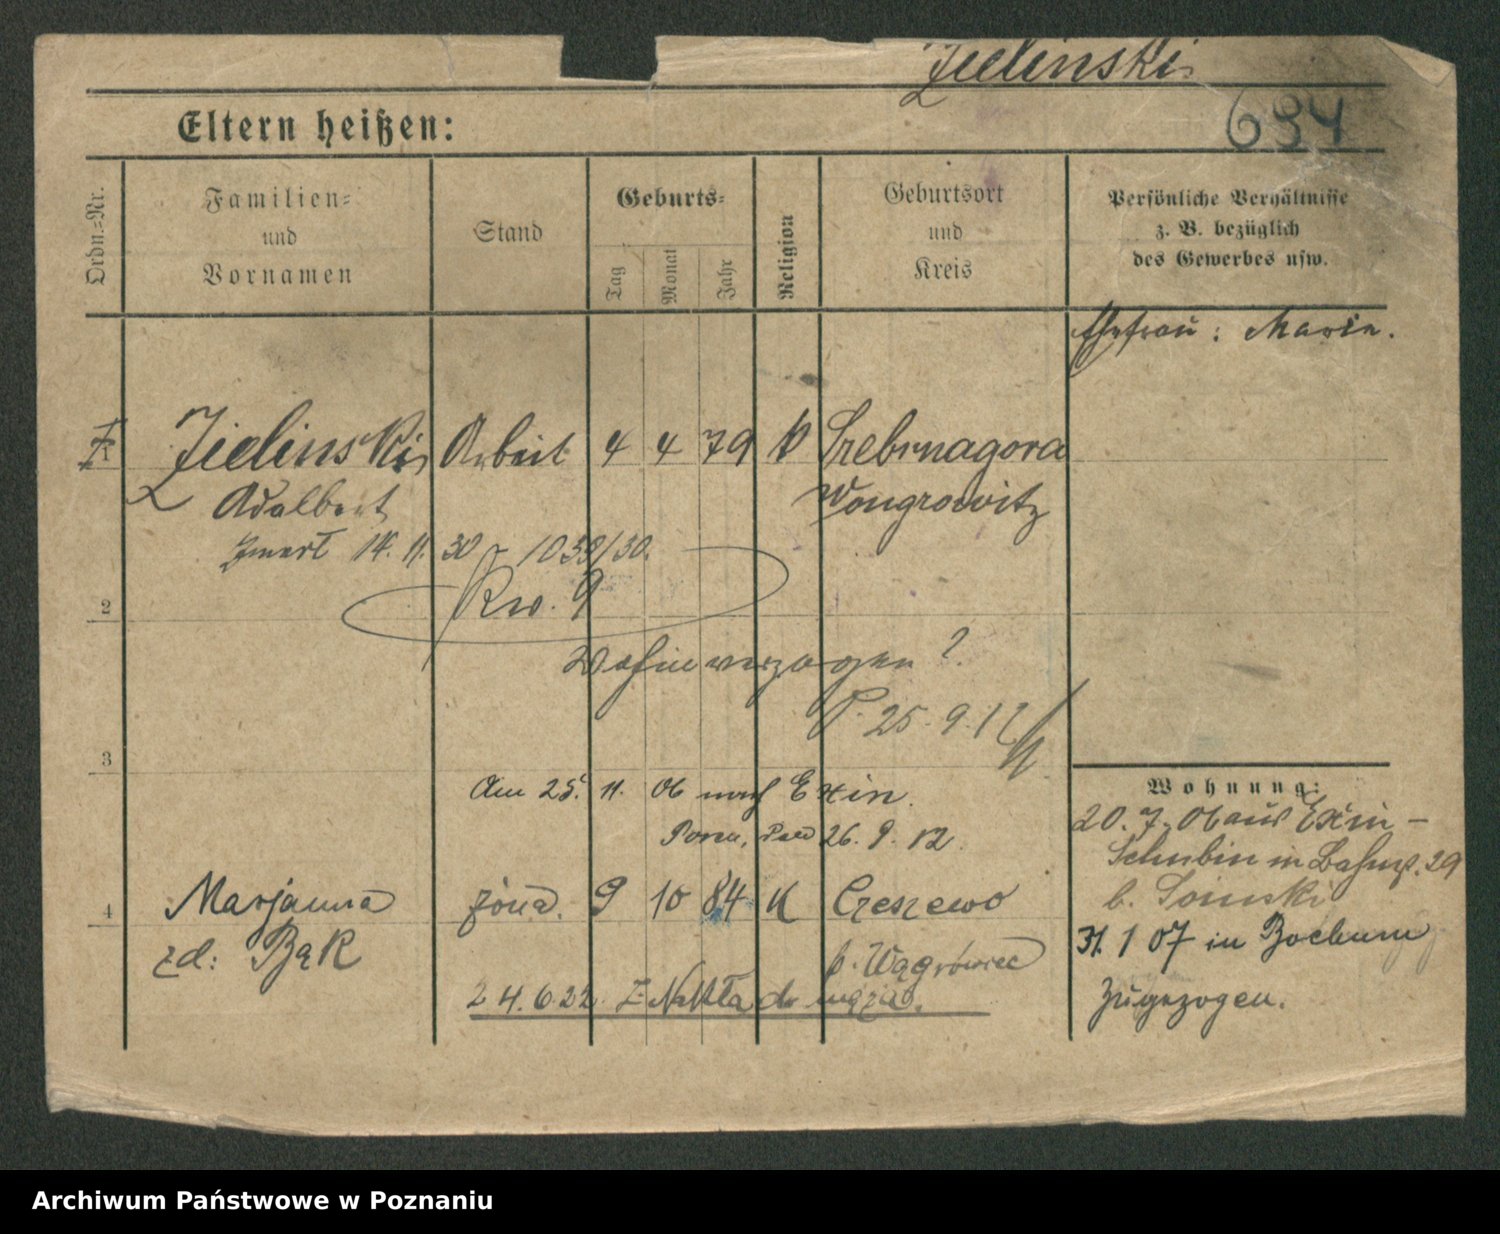 Zielinski
694
Eltern heißen:
Ordn.-Nr.
Familien-
und
Vornamen
Stand
Geburts-
Tag
Monat
Jahr
Religion
Geburtsort
und
Kreis
Persönliche Verhältnisse
z. B. bezüglich
des Gewerbes usw.
Ehefrau: Maria.
1 Zielinski Arbeit 4 4 79 k Srebrnagora
Adalbert Wongrowitz
Zmarł 14. 11. 30 1039/30.
2
Rw. 9
Wohin verzogen?
P. 25. 9. 12
3
Am 25. 11. 06 nach Exin.
26. 9. 12.
Wohnung:
20. 7. 06 aus Exin -
Schubin in Bahnst. 29
b.
31. 1 07 in Bochum
zugezogen.
4 Marjanna żona. 9 10 84 K Czeszewo
zd: Bąk p. Wągrówiec
24. 6. 22. z Nakła do męża.
Archiwum Państwowe w Poznaniu